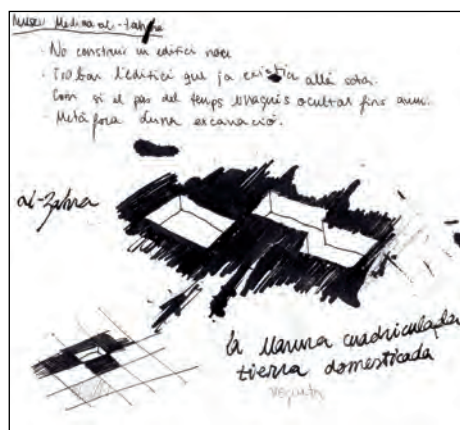 Museu Medina al-Zahra
· No construir un edifici nou
· Trobar l'edifici que ja existia allà sota.
Com si el pas del temps l'hagués ocultat fins avui.
- Metàfora d'una excavació.
al-Zahra
la llanura cuadriculada
tierra domesticada